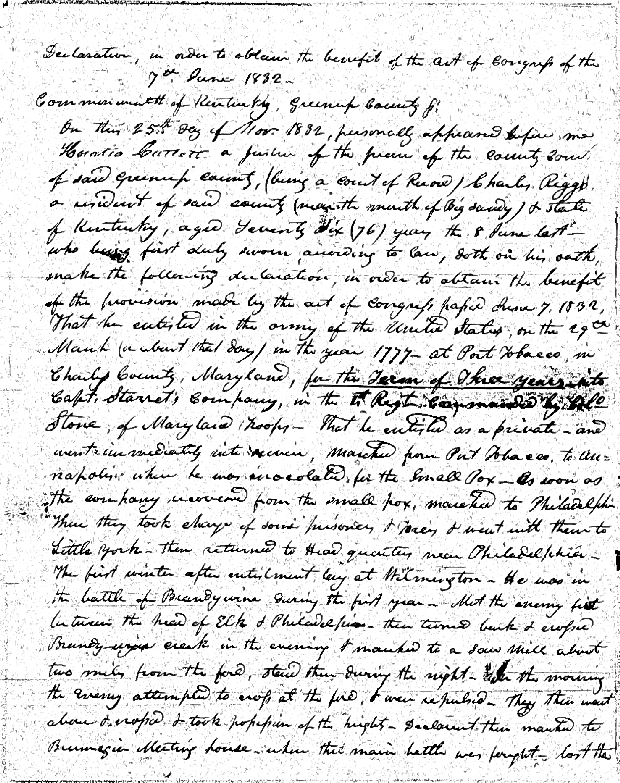 Declaration, in order to obtain the benefit of the act of Congress of the
7th June 1832 -
Commonwealth of Kentucky, Greenup County Ss:
On this 25th day of Nov. 1832, personally appeared before me
a Justice of the peace of the county Court
of said Greenup county, (being a court of Record) Charles Riggs
a resident of said county (near the mouth of Big Sandy) & State
of Kentucky, aged Seventy Six (76) years the 8 June last -
who being first duly sworn according to law, doth on his oath,
make the following declaration, in order to obtain the benefit
of the provision made by the act of Congress passed June 7, 1832,
That he entisted in the army of the United States, on the 29th
March (or about that day) in the year 1777 - at Port Tobacco, in
Charles County, Maryland, for the Term of Three years into
Capt. Company, in the Regt. Commanded by Colo
Stone, of Maryland troops - That he entisted as a private - and
went immediately into service, marched from Port Tobacco, to An-
napolis, where he was inoculated for the Small Pox - As soon as
the company recovered from the small pox, marched to Philadelphia
There they took charge of some prisoners & went with them to
Little York - then returned to Head quarters near Philadelphia -
The first winter after entistment lay at Wilmington - He was in
the battle of Brandywine during the first year - Met the enemy first
between the head of Elk & Philadelphia - then turned back & crossed
Brandy creek in the evening & marched to a Saw Mill about
two miles from the ford, staid there during the night - In the morning
the Enemy attempted to cross at the ford, & were repulsed - They then went
above & crossed & took possession of the heights - Declarant then marched to
Meeting house - where the main battle was fought - lost the